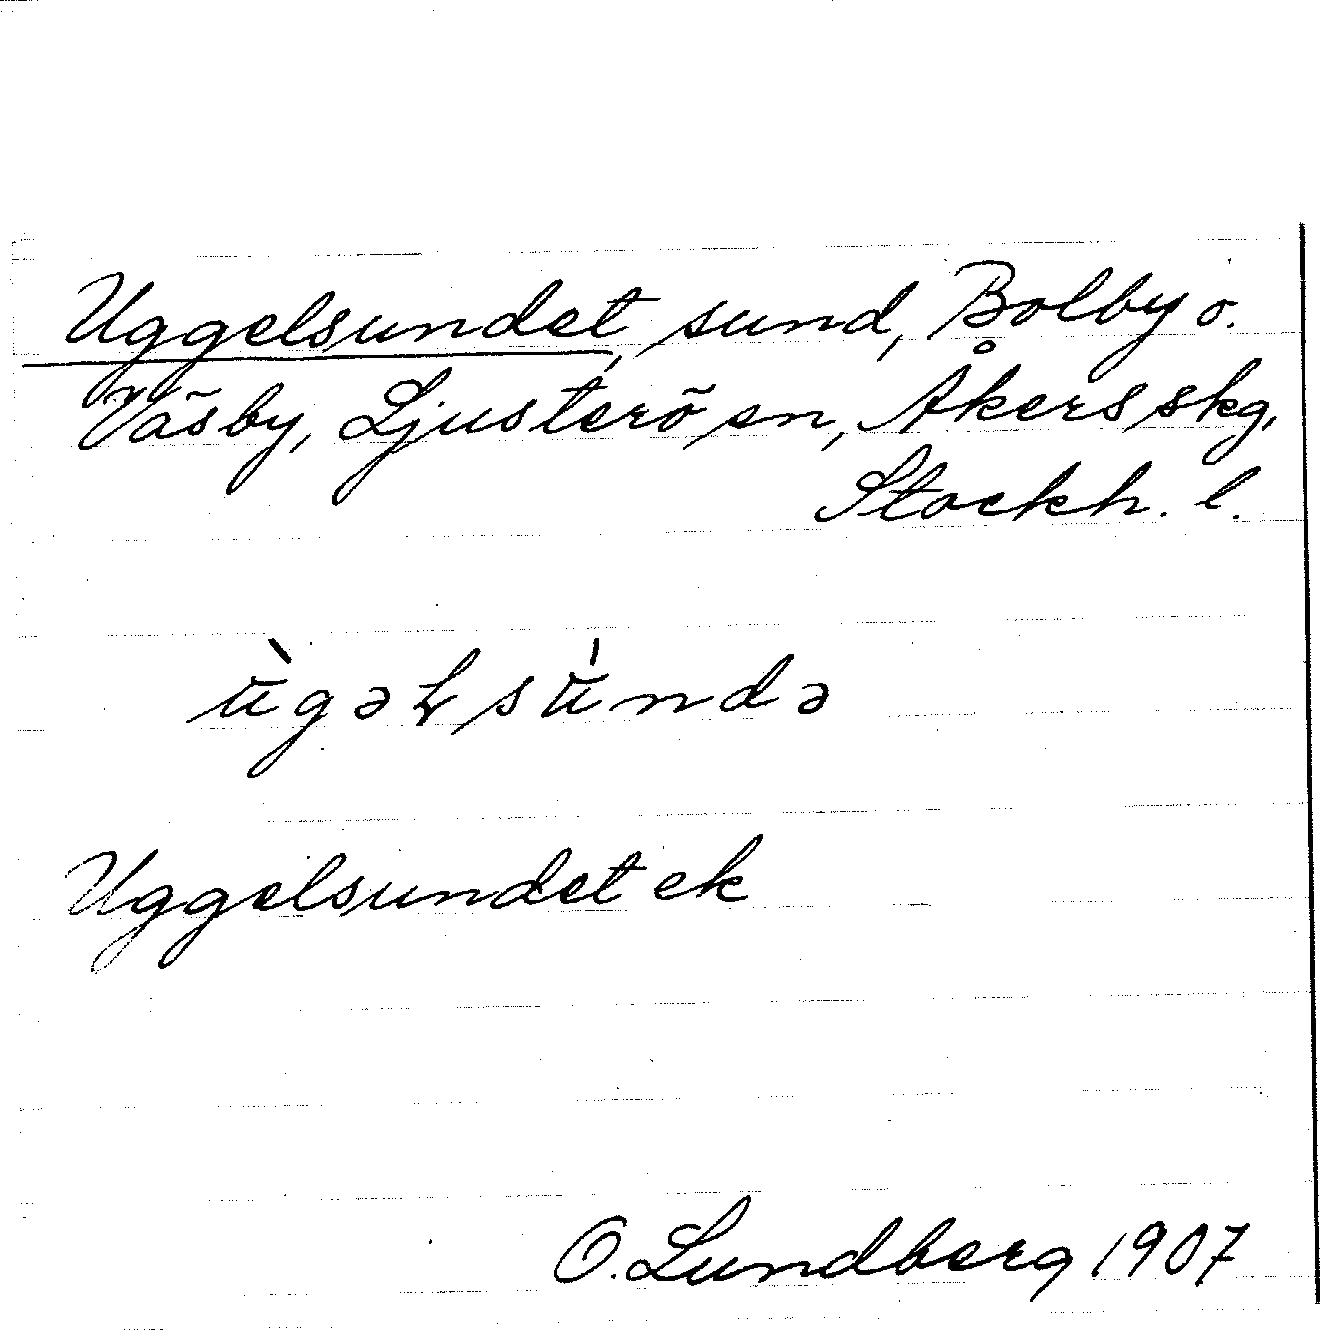 Uggelsundet, sund, Bolby o.
Väsby, Ljusterö sn, Åkers skg,
Stockh. l.
ùgəłsúndə
Uggelsundet ek
O. Lundberg 1907